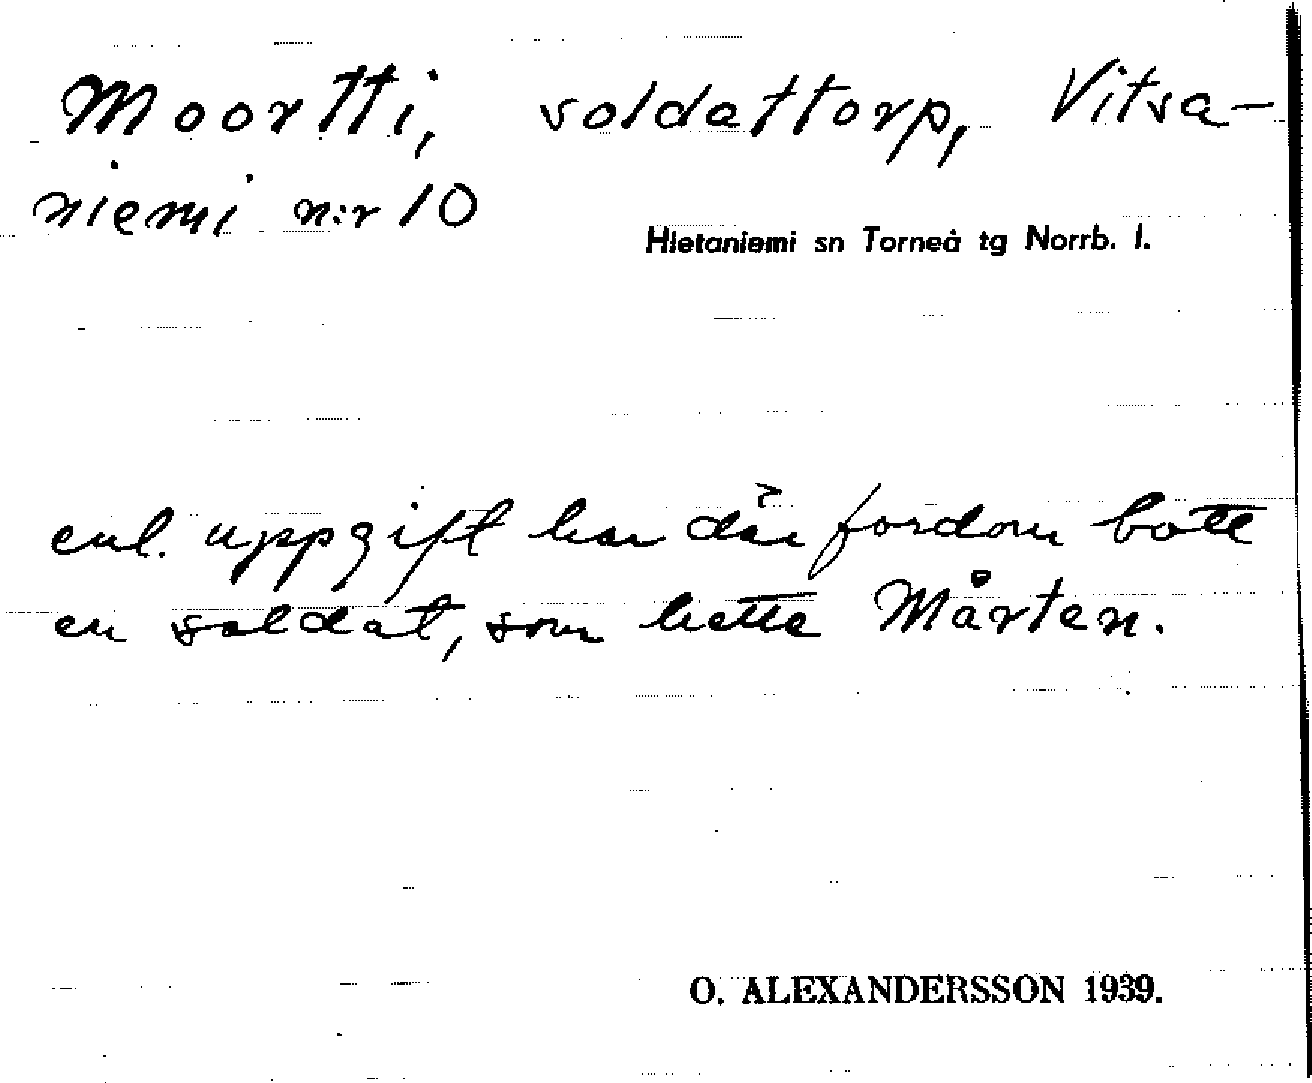 Moortti, soldattorp, Vitsa-
niemi n:r 10
Hietaniemi sn Torneå tg Norrb. l.
enl. uppgift har där fordom bott
en soldat, som hette Mårten.
O. ALEXANDERSSON 1939.